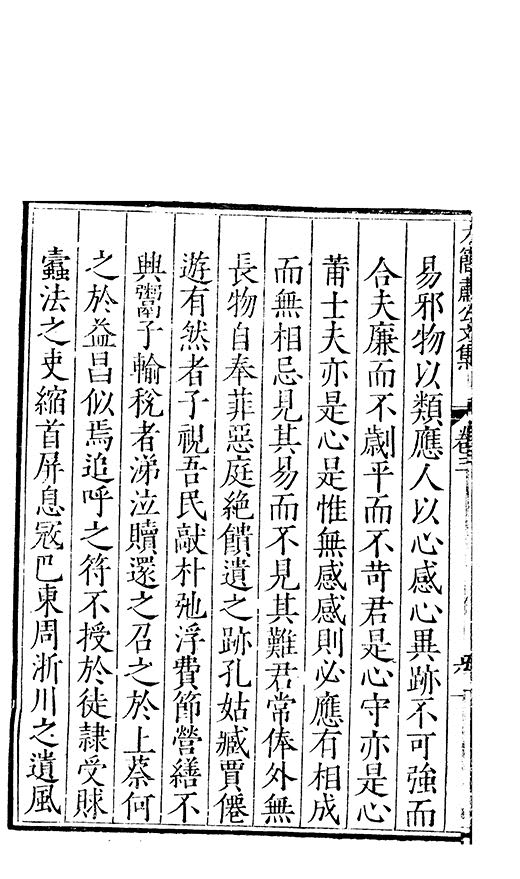 易邪物以類應人以心感心異跡不可強而
合夫廉而不劌平而不苛君是心守亦是心
莆士夫亦是心是惟無感感則必應有相成
而無相忌見其易而不見其難君常俸外無
長物自奉菲惡庭絶饋遺之跡孔姑臧賈僊
遊有然者子視吾民敲朴弛浮費節營繕不
興鬻子輸稅者涕泣贖還之召之於上蔡何
之於益昌似焉追呼之符不授於徒隸受賕
蠧法之吏縮首屏息冦巴東周浙川之遺風